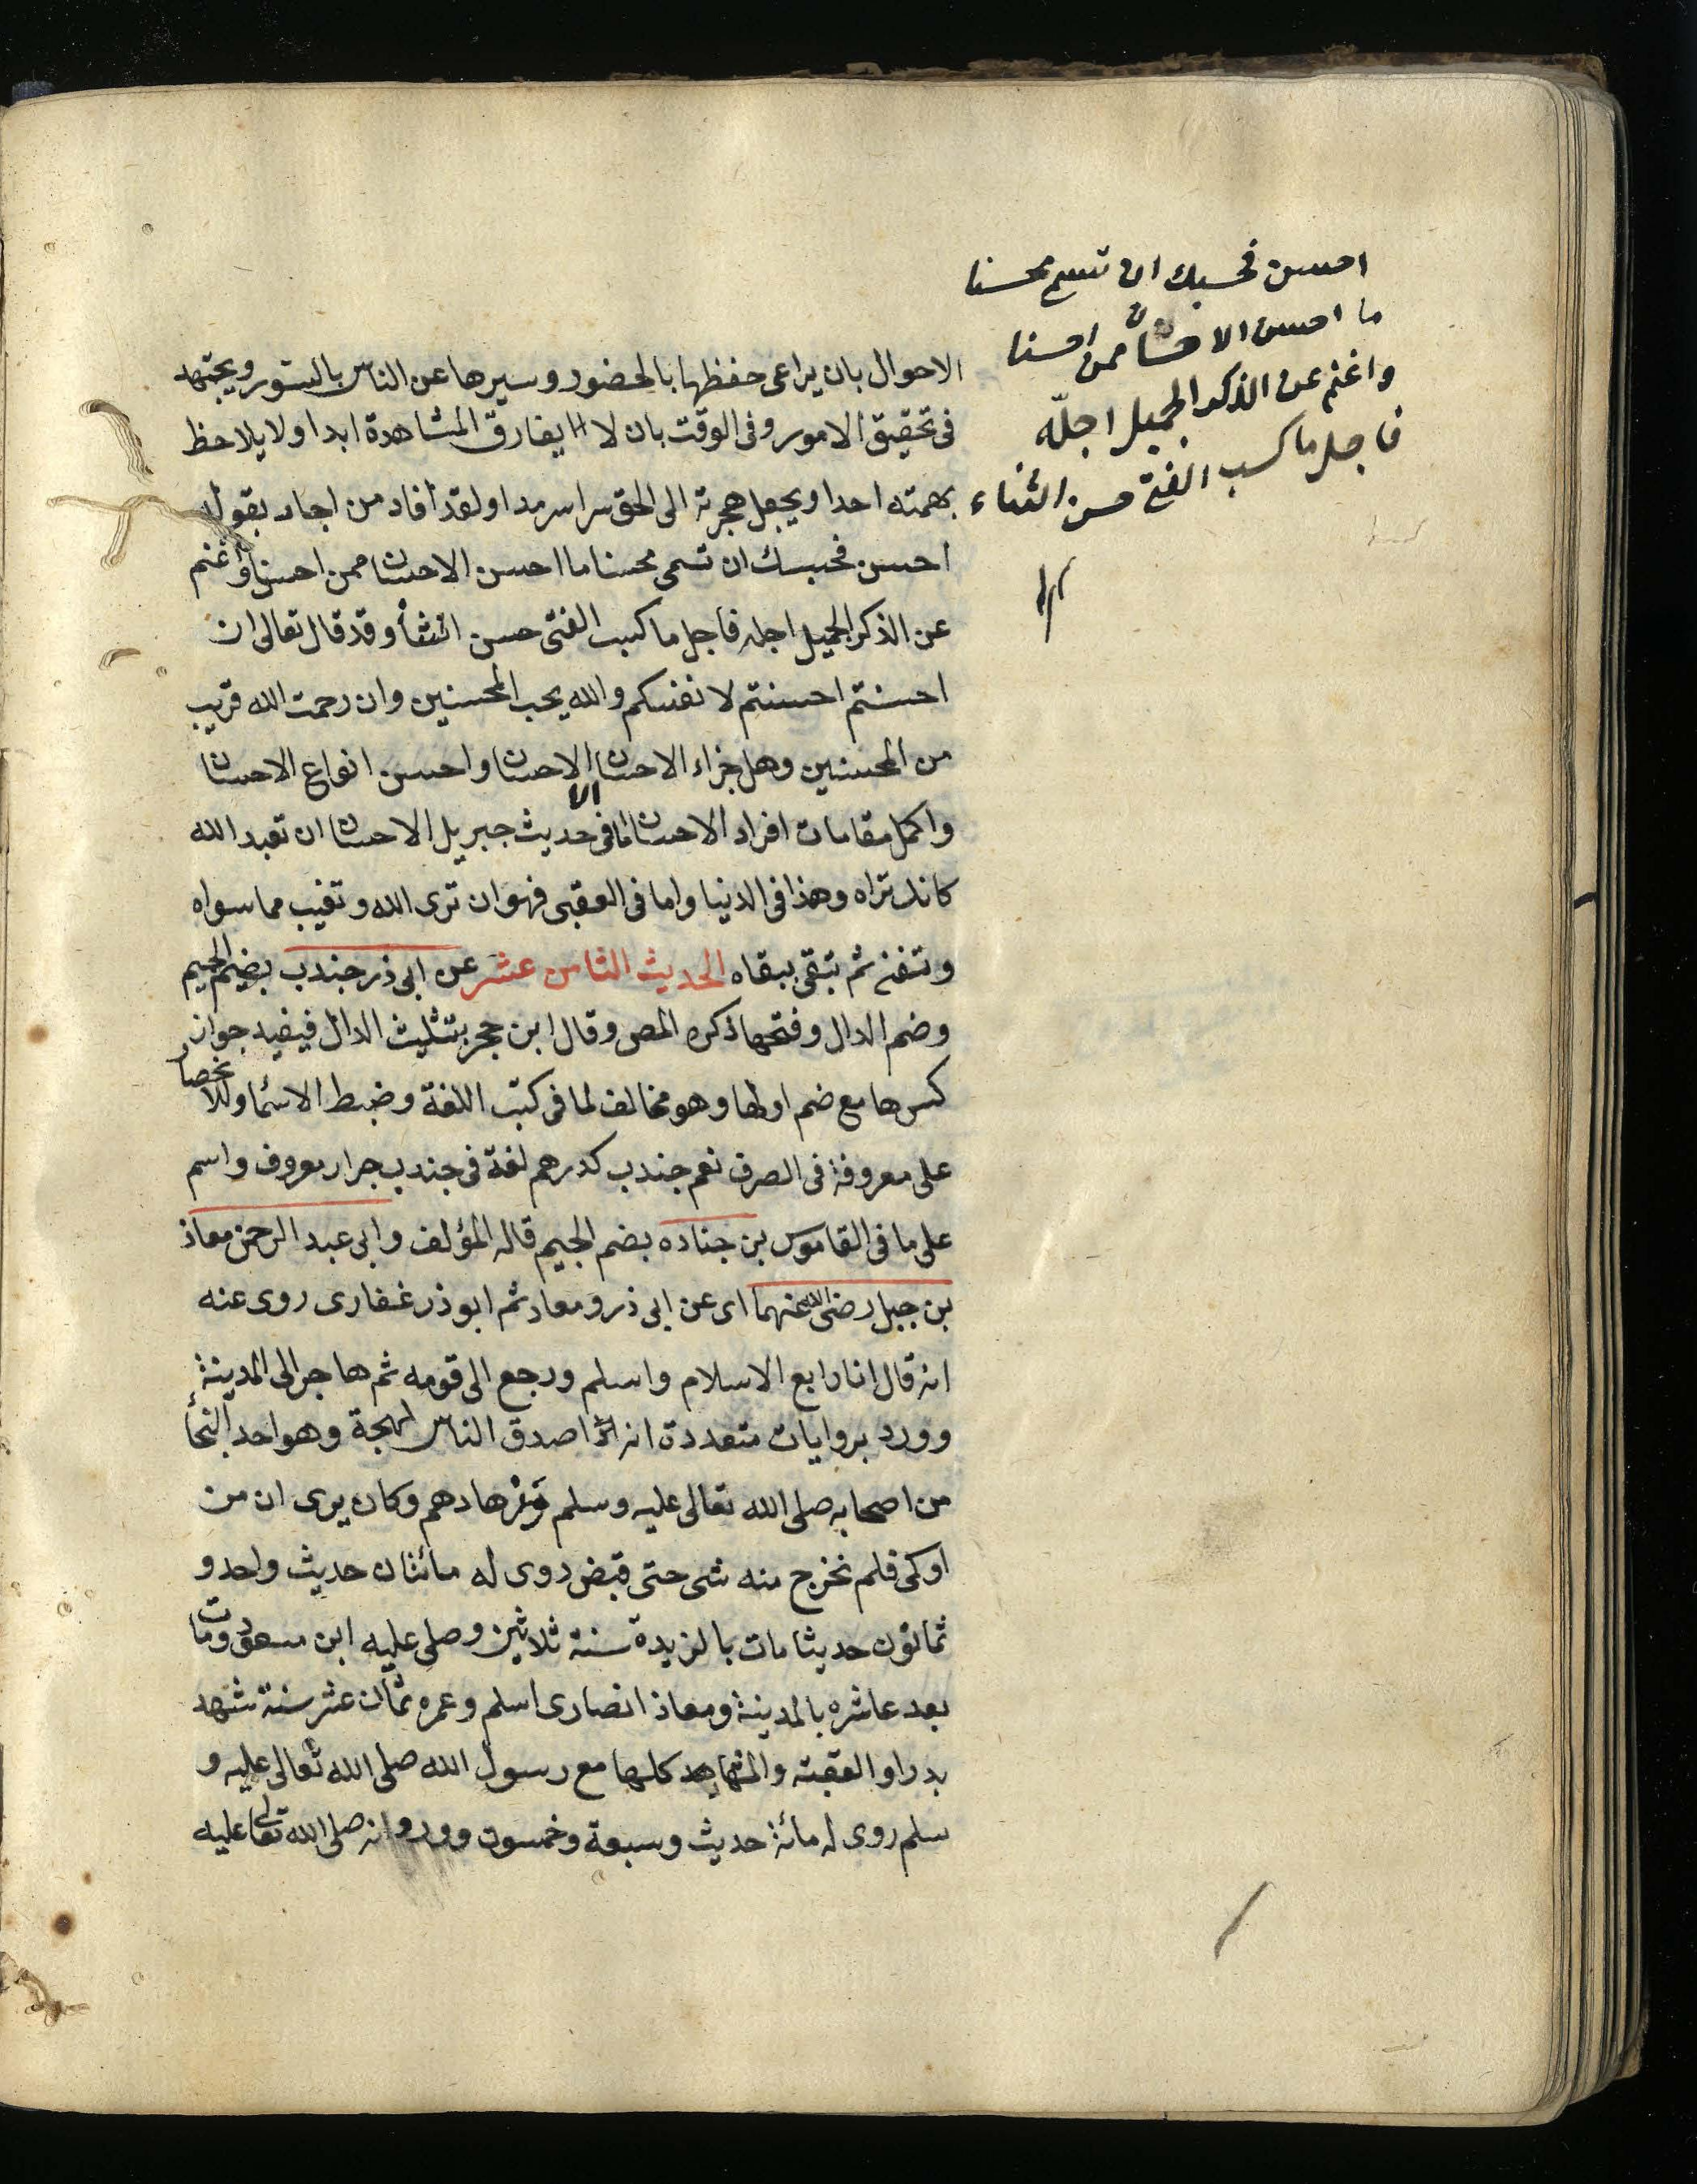 احسن فحسبك ان تسمى محسنا
ما احسن الاحسان ممن احسنا
واغنم عن الذكر الجميل اجلّه
فاجل ما كسب الفتى حسن الثناء
الاحوال بان يراعى حفظها بالحضور وسيرها عن الناس بالستور ويجتهد
فى تحقيق الامور وفى الوقت بان لا يفارق المشاهدة ابدا ولا يلاحظ
بهمته احدا ويجعل هجرته الى الحق سراسرمدا ولقد أفاد من اجاد بقوله
احسن فحبسك ان تسمى محسنا ما احسن الاحسان ممن احسنا واغنم
عن الذكر الجميل اجله فاجل ما كسب الفتى حسن الثنأ وقد قال تعالى ان
احسنتم احسنتم لانفسكم والله يحب المحسنين وان رحمت الله قريب
من المحسنين وهل جزاء الاحسان الا الاحسان واحسن انواع الاحسان
واكمل مقامات افراد الاحسان ما فى حديث جبريل الاحسان ان تعبد الله
كانك تراه وهذا فى الدنيا واما فى العقبى فهو ان ترى الله وتغيب مما سواه
وتفنى ثم تبقى ببقاه الحديث الثامن عشر عن ابى ذر جندب بضم الجيم
وضم الدال وفتحها ذكره المص وقال ابن حجر بتثليث الدال فيفيد جواز
كسرها مع ضم اولها وهو مخالف لما فى كتب اللغة وضبط الاسما
على معروفة فى الصرف نعم جندب كدرهم لغة فى جندب جراد معروف واسم
على ما فى القاموس بن جناده بضم الجيم قاله المؤلف وابى عبد الرحمن معاذ
بن جبل رضى الله عنهما اى عن ابى ذر ومعاد ثم ابو ذر غفارى روى عنه
انه قال انا رابع الاسلام واسلم ورجع الى قومه ثم هاجر الى المدينة
وورد بروايات متعددة انه اصدق الناس لهجة وهو احد النجأ
من اصحابه صلى الله تعالى عليه وسلم وزهادهم وكان يرى ان من
اوكى فلم نخرج منه شى حتى قبض روى له مائتان حديث واحد و
ثمانون حديثا مات بالزبدة سنة ثلاثين وصلى عليه ابن مسعود ومات
بعد عاشره بالمدينة ومعاذ انصارى اسلم وعمره ثمان عشر سنة شهد
بدرا والعقبته والمشاهد كلها مع رسول الله صلى الله تعالى عليه و
سلم روى له مائة حديث وسبعة وخمسون وورد انه صلى الله تعالى عليه